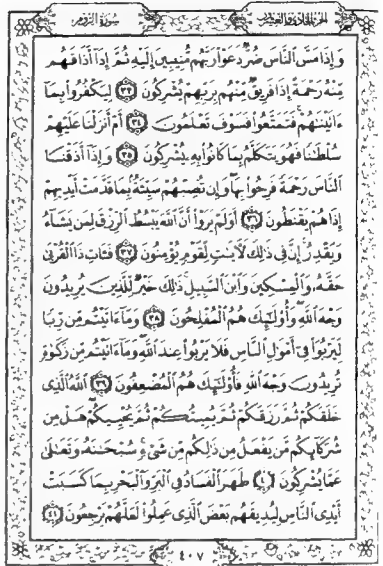 الجزء الحادي والعشرون سورة الروم
وَإِذَا مَسَّ ٱلنَّاسَ ضُرٌّ دَعَوْا۟ رَبَّهُم مُّنِيبِينَ إِلَيْهِ ثُمَّ إِذَآ أَذَاقَهُم
مِّنْهُ رَحْمَةً إِذَا فَرِيقٌ مِّنْهُم بِرَبِّهِمْ يُشْرِكُونَ ﴿٣٣﴾ لِيَكْفُرُوا۟ بِمَآ
ءَاتَيْنَٰهُمْ فَتَمَتَّعُوا۟ فَسَوْفَ تَعْلَمُونَ ﴿٣٤﴾ أَمْ أَنزَلْنَا عَلَيْهِمْ
سُلْطَٰنًا فَهُوَ يَتَكَلَّمُ بِمَا كَانُوا۟ بِهِۦ يُشْرِكُونَ ﴿٣٥﴾ وَإِذَآ أَذَقْنَا
ٱلنَّاسَ رَحْمَةً فَرِحُوا۟ بِهَا وَإِن تُصِبْهُمْ سَيِّئَةٌۢ بِمَا قَدَّمَتْ أَيْدِيهِمْ
إِذَا هُمْ يَقْنَطُونَ ﴿٣٦﴾ أَوَلَمْ يَرَوْا۟ أَنَّ ٱللَّهَ يَبْسُطُ ٱلرِّزْقَ لِمَن يَشَآءُ
وَيَقْدِرُ إِنَّ فِى ذَٰلِكَ لَءَايَٰتٍ لِّقَوْمٍ يُؤْمِنُونَ ﴿٣٧﴾ فَـَٔاتِ ذَا ٱلْقُرْبَىٰ
حَقَّهُۥ وَٱلْمِسْكِينَ وَٱبْنَ ٱلسَّبِيلِ ذَٰلِكَ خَيْرٌ لِّلَّذِينَ يُرِيدُونَ
وَجْهَ ٱللَّهِ وَأُو۟لَٰٓئِكَ هُمُ ٱلْمُفْلِحُونَ ﴿٣٨﴾ وَمَآ ءَاتَيْتُم مِّن رِّبًا
لِّيَرْبُوَا۟ فِىٓ أَمْوَٰلِ ٱلنَّاسِ فَلَا يَرْبُوا۟ عِندَ ٱللَّهِ وَمَآ ءَاتَيْتُم مِّن زَكَوٰةٍ
تُرِيدُونَ وَجْهَ ٱللَّهِ فَأُو۟لَٰٓئِكَ هُمُ ٱلْمُضْعِفُونَ ﴿٣٩﴾ ٱللَّهُ ٱلَّذِى
خَلَقَكُمْ ثُمَّ رَزَقَكُمْ ثُمَّ يُمِيتُكُمْ ثُمَّ يُحْيِيكُمْ هَلْ مِن
شُرَكَآئِكُم مَّن يَفْعَلُ مِن ذَٰلِكُم مِّن شَىْءٍ سُبْحَٰنَهُۥ وَتَعَٰلَىٰ
عَمَّا يُشْرِكُونَ ﴿٤٠﴾ ظَهَرَ ٱلْفَسَادُ فِى ٱلْبَرِّ وَٱلْبَحْرِ بِمَا كَسَبَتْ
أَيْدِى ٱلنَّاسِ لِيُذِيقَهُم بَعْضَ ٱلَّذِى عَمِلُوا۟ لَعَلَّهُمْ يَرْجِعُونَ ﴿٤١﴾
٤٠٧